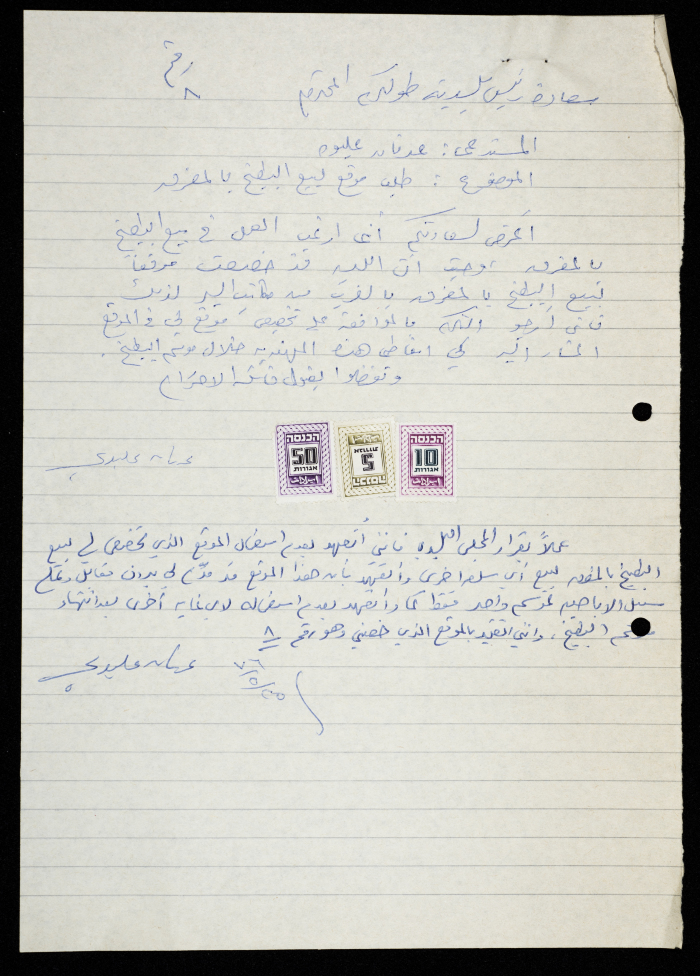 رقم
٨
سعادة رئيس بلدية طولكرم المحترم
المستدعي : عدنان عليوي
الموضوع : طلب موقع لبيع البطيخ بالمفرق
اعرض لسعادتكم أنني ارغب العمل في بيع البطيخ
بالمفرق ، وحيث ان البلدية قد خصصت موقعاً
لبيع البطيخ بالمفرق بالقرب من مكاتب السير لذلك
فانني ارجو التكرم بالموافقة على تخصيص موقع لي في الموقع
المشار اليه لكي اتعاطى هذه المهنة خلال موسم البطيخ .
وتفضلوا بقبول فائق الاحترام
הכנסה
50
אגורות
5
הכנסה
10
אגורות
عدنان عليوي
عملاً بقرار المجلس البلدي فانني أتعهد بعدم استعمال الموقع الذي تخصص لي لبيع
البطيخ بالمفرق لبيع أي سلعة اخرى وأتعهد بأن هذا الموقع قد قدّم لي بدون مقابل وعلى
سبيل الاباحة لموسم واحد فقط كما وأتعهد بعدم استعماله لاي غاية أخرى بعد انتهاء
موسم البطيخ . وانني اتقيد بالموقع الذي خصني وهو رقم ٨
عدنان عليوي